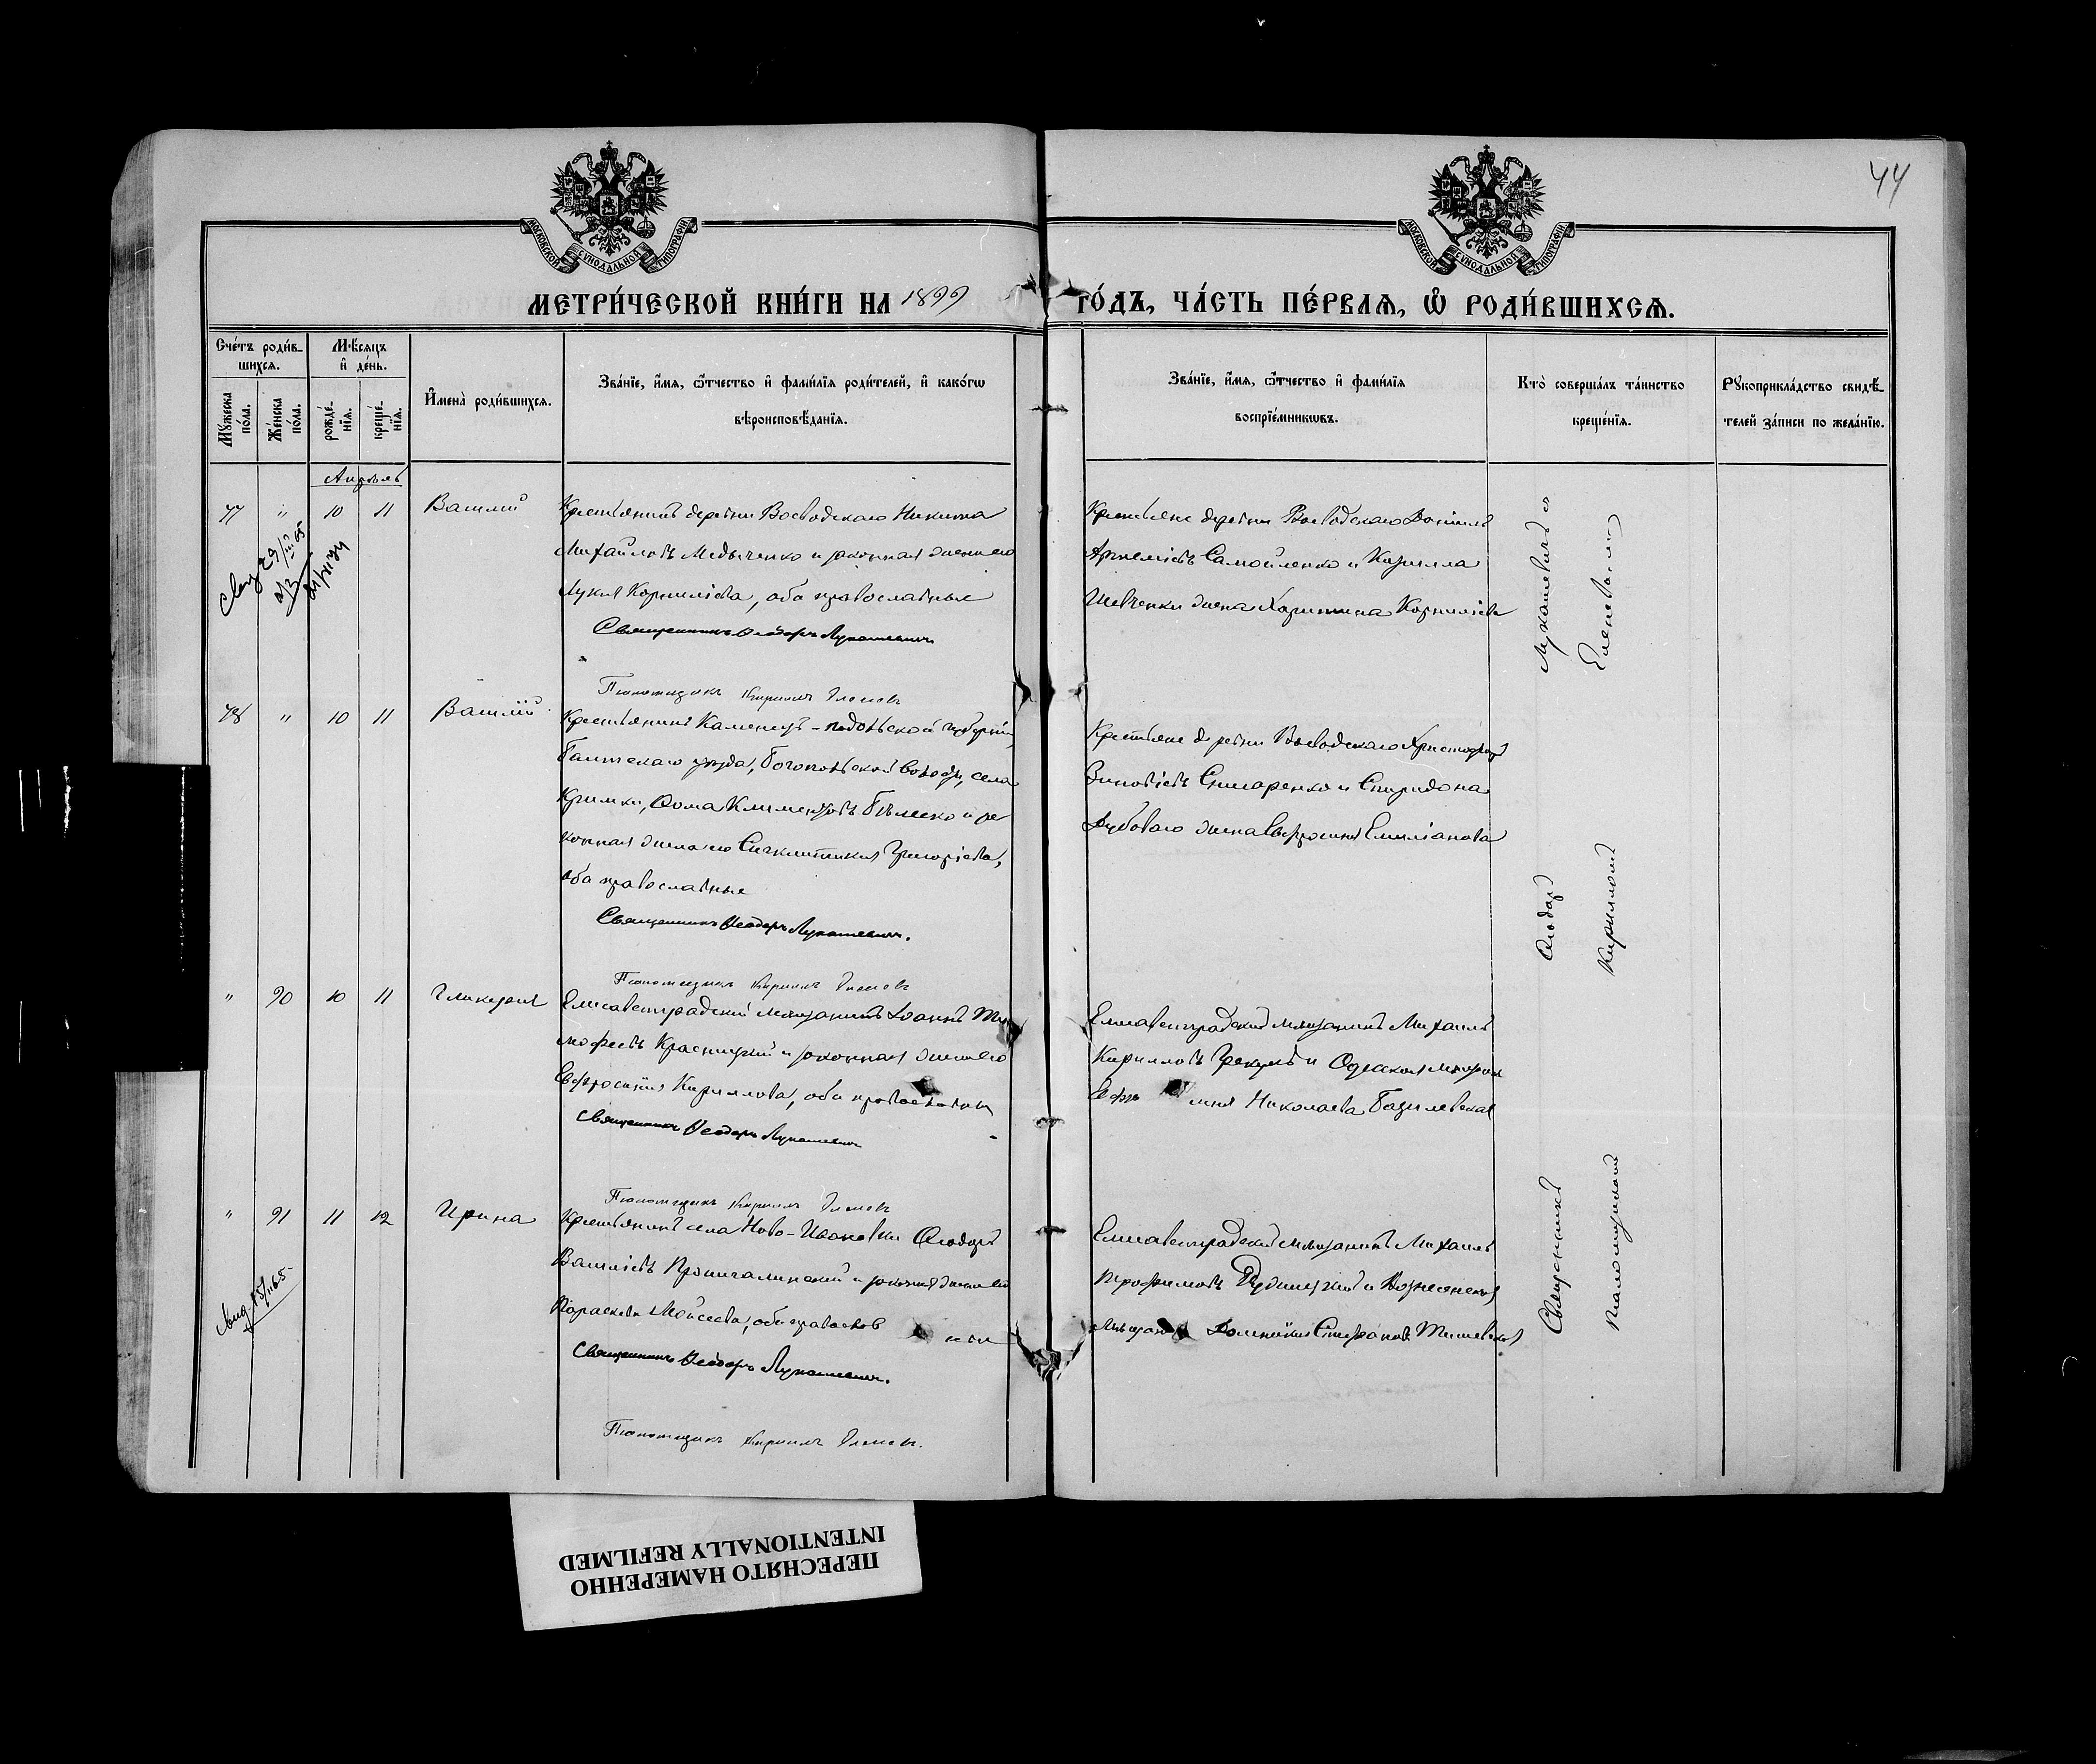 44
МОСКОВСКОЙ СѴНОДАЛЬНОЙ ТИПОГРАФІИ
МОСКОВСКОЙ СѴНОДАЛЬНОЙ ТИПОГРАФІИ
МЕТРИ́ЧЕСКОЙ КНИ́ГИ НА 1899
ГО́ДЪ, ЧА́СТЬ ПЕ́РВАѦ, Ѽ РОДИ́ВШИХСѦ.
Сче́тъ роди́в-
шихсѧ.
Му́жеска по́ла.
Же́нска по́ла.
Мѣ́сяцъ
и҆ де́нь.
рожде́-
нїѧ.
креще́-
нїѧ.
И҆мена̀ роди́вшихсѧ.
Зва́нїе, и҆́мѧ, ѻ҆́тчество и҆ фами́лїѧ роди́телей, и҆ како́гѡ
вѣроисповѣ́данїѧ.
Зва́нїе, и҆́мѧ, ѻ҆́тчество и҆ фами́лїѧ
воспрїе́мникѡвъ.
Кто̀ соверша́лъ та́инство
креще́нїѧ.
Рꙋкоприкла́дство свидѣ́-
телей за́писи по жела́нїю.
Апрѣль
77 " 10 11 Василій
Крестьянинъ деревни Воеводскаго Никита
Михайловъ Медыченко и законная жена его
Лукія Корниліева, оба православные
Священникъ Ѳеодоръ Лукашевичъ
Псаломщикъ Кириллъ Еленевъ
Крестьяне деревни Воеводскаго Даніилъ
Артеміевъ Самойленко и Кирилла
Шевченки жена Харитина Корниліева
78 " 10 11 Василій
Крестьянинъ Каменецъ-подольской губерніи,
Балтскаго уѣзда, Богопольской волости, села
Кримки, Ѳома Климентовъ Бѣленко и за
конная жена его Сигклитикія Григоріева,
оба православные
Священникъ Ѳеодоръ Лукашевичъ.
Псаломщикъ Кириллъ Еленевъ
Крестьяне деревни Воеводскаго Христофоръ
Зиновіевъ Снигаренко и Спиридона
Дубоваго жена Евфросинія Емиліанова
" 90 10 11 Гликерія
Елисаветградскій мѣщанинъ Іоаннъ Ти
мофеевъ Красицкій и законная жена его
Евфросинія Кириллова, оба православные
Священникъ Ѳеодоръ Лукашевичъ
Псаломщикъ Кириллъ Еленевъ
Елисаветградскій мѣщанинъ Михаилъ
Кирилловъ и Одесская мѣщанка
Николаева Базилевская
" 91 11 12 Ирина
Крестьянинъ села Ново-Ивановки Ѳеодоръ
Василіевъ и законная жена его
Параскева Моисеева, оба православные
Священникъ Ѳеодоръ Лукашевичъ.
Псаломщикъ Кириллъ Еленевъ.
Елисаветградскій мѣщанинъ Михаилъ
Трофимовъ и Вознесенская
мѣщанка Домникія Стефанова
Священникъ Ѳеодоръ Лукашевичъ съ
Псаломщикомъ Кирилломъ Еленевымъ
ПЕРЕСНЯТО НАМЕРЕННО
INTENTIONALLY REFILMED